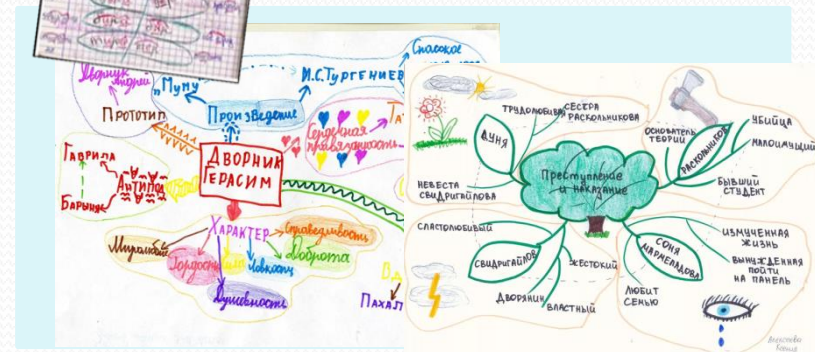 Дворник
Андрей
"Муму"
И.С. Тургениев
Спасское
Прототип
Произведение
Сердечная
привязанность
Та
Гаврила
Антипод
Барыня
ДВОРНИК
ГЕРАСИМ
Характер
Миролюбие
Гордость
Сила
Ловкость
Справедливость
Доброта
Душевность
Вд
Пахал
ТРУДОЛЮБИВАЯ
СЕСТРА
РАСКОЛЬНИКОВА
ДУНЯ
НЕВЕСТА
СВИДРИГАЙЛОВА
Преступление
и наказание
ОСНОВАТЕЛЬ
ТЕОРИИ
РАСКОЛЬНИКОВ
УБИЙЦА
МАЛОИМУЩИЙ
БЫВШИЙ
СТУДЕНТ
СЛАСТОЛЮБИВЫЙ
СВИДРИГАЙЛОВ
ЖЕСТОКИЙ
ДВОРЯНИН
ВЛАСТНЫЙ
СОНЯ
МАРМЕЛАДОВА
ИЗМУЧЕННАЯ
ЖИЗНЬ
ВЫНУЖДЕННАЯ
ПОЙТИ
НА ПАНЕЛЬ
ЛЮБИТ
СЕМЬЮ